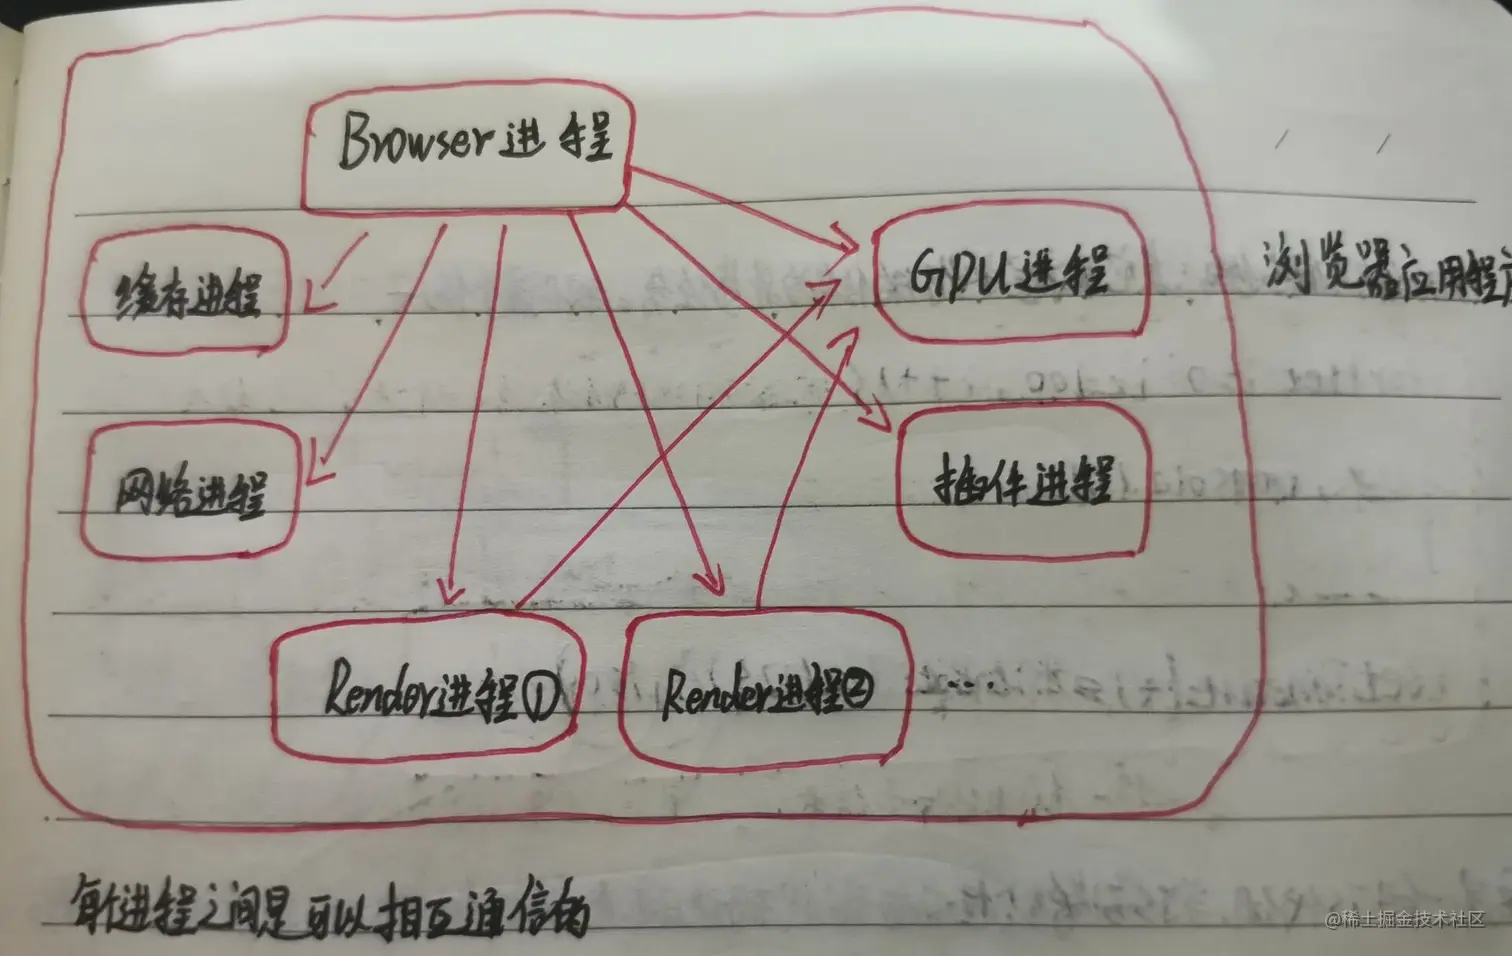 Browser进程
缓存进程
GPU进程
浏览器应用程序
网络进程
插件进程
Render进程①
Render进程②
...
每个进程之间是可以相互通信的
@稀土掘金技术社区